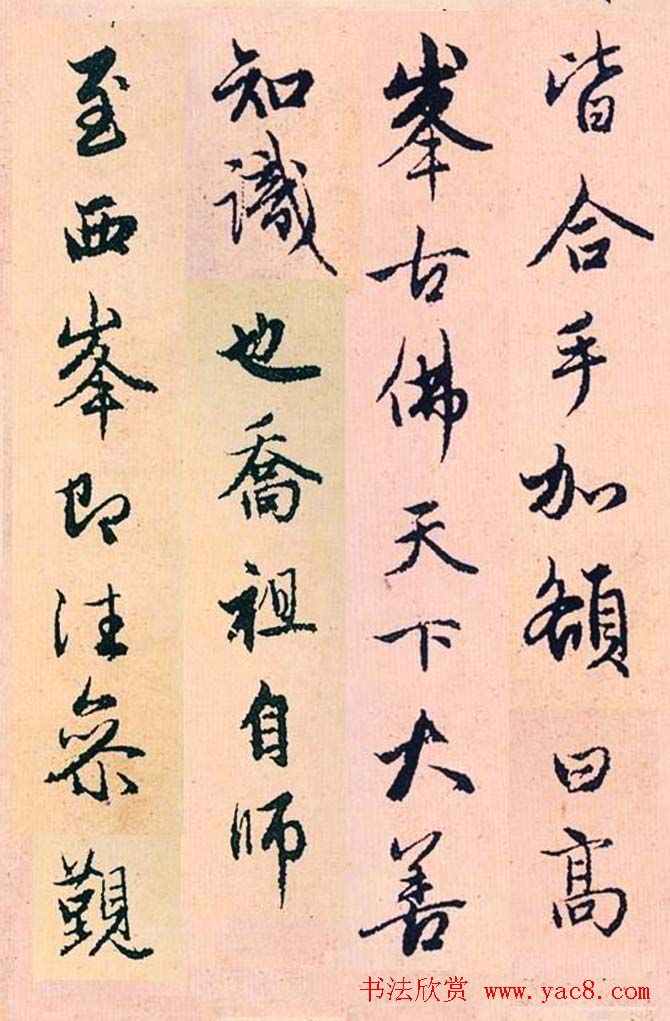 皆合手加額曰高
峯古佛天下大善
知識也喬祖自師
至西峯即往叅覲
书法欣赏 www.yac8.com